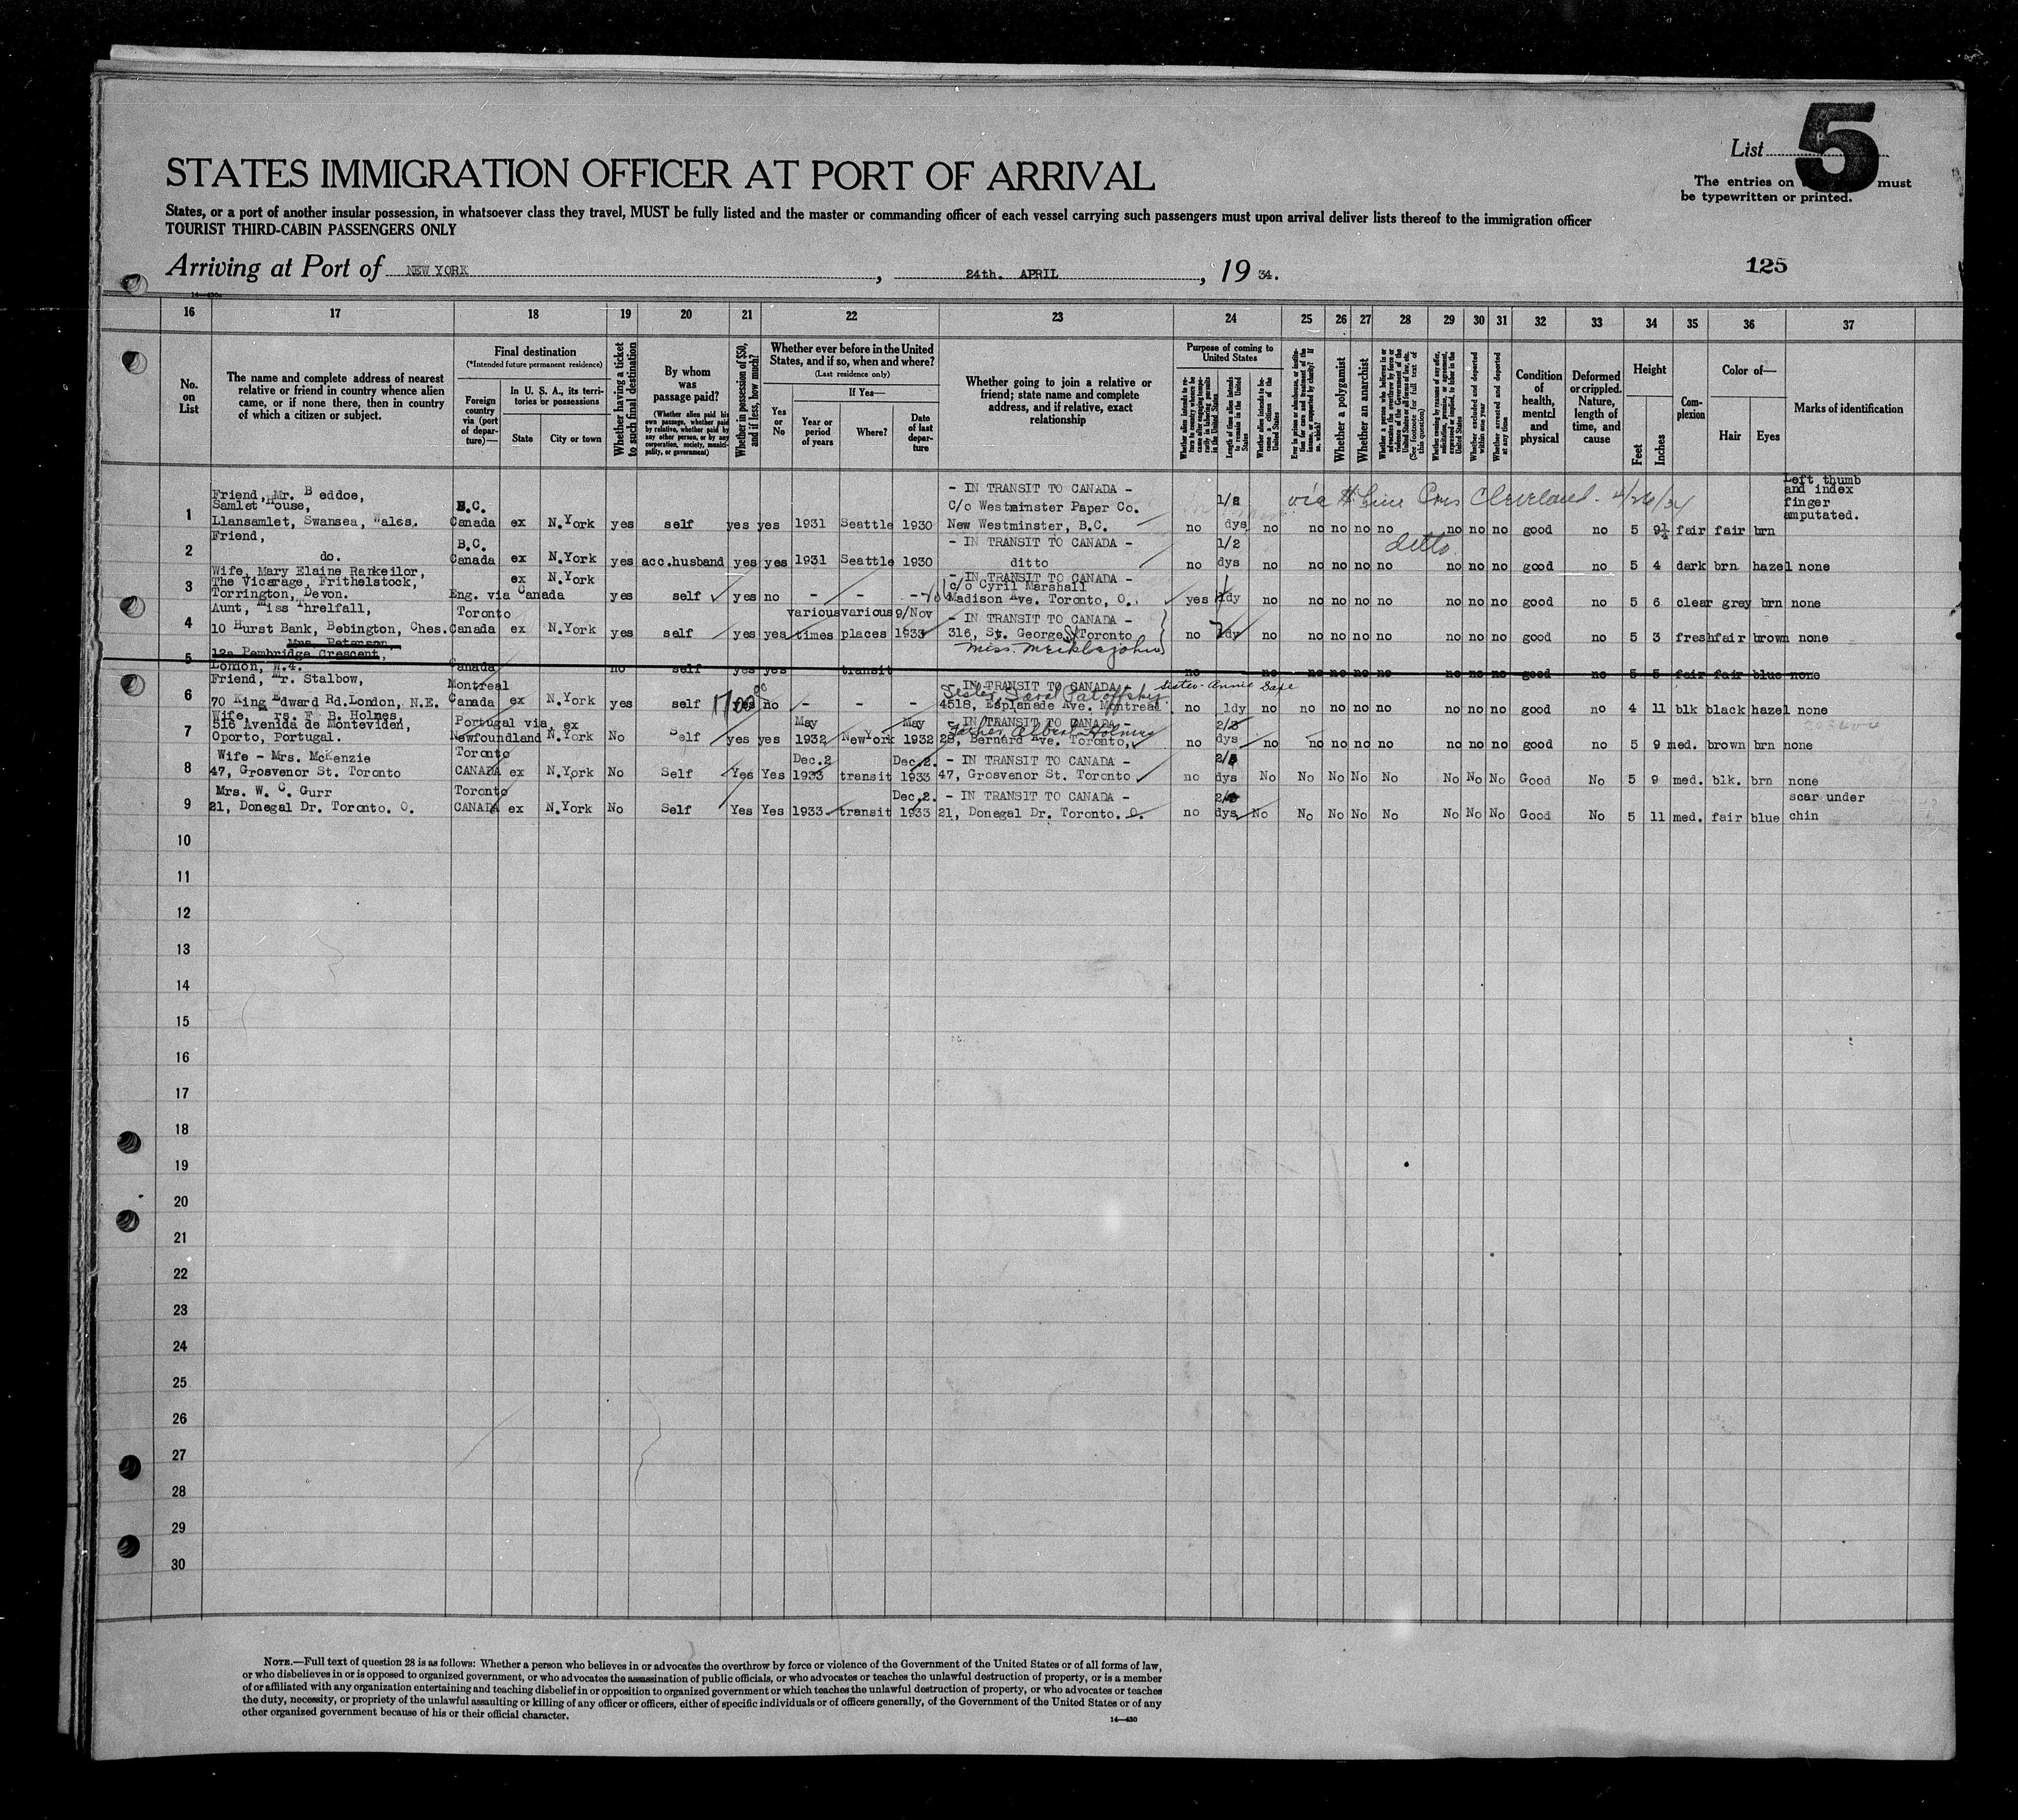 List 5
The entries on must
be typewritten or printed.
STATES IMMIGRATION OFFICER AT PORT OF ARRIVAL
States, or a port of another insular possession, in whatsoever class they travel, MUST be fully listed and the master or commanding officer of each vessel carrying such passengers must upon arrival deliver lists thereof to the immigration officer
TOURIST THIRD-CABIN PASSENGERS ONLY
Arriving at Port of NEW YORK, 24th. APRIL, 19 34.
125
16 17 18 19 20 21 22 23 24 25 26 27 28 29 30 31 32 33 34 35 36 37
No. on List
The name and complete address of nearest
relative or friend in country whence alien
came, or if none there, then in country
of which a citizen or subject.
Final destination
(*Intended future permanent residence)
Foreign country via (port of departure)—
In U. S. A., its territories or possessions
State
City or town
Whether having a ticket to such final destination
By whom was passage paid?
(Whether alien paid his own passage, whether paid by relative, whether paid by any other person, or by any corporation, society, municipality, or government)
Whether in possession of $50, and if less, how much?
Whether ever before in the United States, and if so, when and where?
(Last residence only)
Yes or No
If Yes—
Year or period of years
Where?
Date of last departure
Whether going to join a relative or
friend; state name and complete
address, and if relative, exact
relationship
Purpose of coming to United States
Length of time alien intends to remain in the United States
Whether alien intends to become a citizen of the United States
Whether a polygamist
Whether an anarchist
Whether excluded and deported within one year
Whether arrested and deported at any time
Condition of health, mental and physical
Deformed or crippled. Nature, length of time, and cause
Height
Feet
Inches
Complexion
Color of—
Hair
Eyes
Marks of identification
1 Friend, Mr. Beddoe,
Samlet House,
Llansamlet, Swansea, Wales. B.C. Canada ex N.York yes self yes yes 1931 Seattle 1930 - IN TRANSIT TO CANADA - C/o Westminster Paper Co. New Westminster, B.C. no 1/2 dys no no no no no no no no good no 5 9¼ fair fair brn Left thumb and index finger amputated.
Cleveland - 4/26/34
2 Friend,
do. B.C. Canada ex N.York yes acc.husband yes yes 1931 Seattle 1930 - IN TRANSIT TO CANADA - ditto no 1/2 dys no no no no no no no no good no 5 4 dark brn hazel none
ditto
3 Wife, Mary Elaine Rankeilor,
The Vicarage, Frithelstock,
Torrington, Devon. Eng. via Canada ex N.York yes self yes no - - - - IN TRANSIT TO CANADA - c/o Cyril Marshall Madison Ave. Toronto, O. yes 1dy no no no no no no no no good no 5 6 clear grey brn none
4 Aunt, Miss Threlfall,
10 Hurst Bank, Bebington, Ches. Toronto Canada ex N.York yes self yes yes various times various places 9/Nov 1933 - IN TRANSIT TO CANADA - 316, St. George St Toronto no 1dy no no no no no no no no good no 5 3 fresh fair brown none
Miss. Meiklejohn
5 Mrs. Peterson,
12a Pembridge Crescent,
London, W.4. Canada no self yes yes transit no no no no no no no no no good no 5 5 fair fair blue none
6 Friend, Mr. Stalbow,
70 King Edward Rd. London, N.E. Montreal Canada ex N.York yes self yes no - - - - IN TRANSIT TO CANADA - 4518, Esplanade Ave. Montreal no 1dy no no no no no no no no good no 4 11 blk black hazel none
Sister
7 Wife, Mrs. F B. Holmes,
516 Avenida de Montevideo,
Oporto, Portugal. Portugal via, ex Newfoundland N.York No Self yes yes May 1932 New York May 1932 - IN TRANSIT TO CANADA - 28, Bernard Ave. Toronto, no 2/3 dys no no no no no no no no good no 5 9 med. brown brn none
Father Albert Holmes
8 Wife - Mrs. McKenzie
47, Grosvenor St. Toronto Toronto CANADA ex N.York No Self Yes Yes Dec.2 1933 transit Dec.2. 1933 - IN TRANSIT TO CANADA - 47, Grosvenor St. Toronto no dys No No No No No No No No Good No 5 9 med. blk. brn none
9 Mrs. W. C. Gurr
21, Donegal Dr. Toronto. O. Toronto CANADA ex N.York No Self Yes Yes 1933 transit Dec.2. 1933 - IN TRANSIT TO CANADA - 21, Donegal Dr. Toronto. O. no dys No No No No No No No No Good No 5 11 med. fair blue scar under chin
10
11
12
13
14
15
16
17
18
19
20
21
22
23
24
25
26
27
28
29
30
NOTE.—Full text of question 28 is as follows: Whether a person who believes in or advocates the overthrow by force or violence of the Government of the United States or of all forms of law,
or who disbelieves in or is opposed to organized government, or who advocates the assassination of public officials, or who advocates or teaches the unlawful destruction of property, or is a member
of or affiliated with any organization entertaining and teaching disbelief in or opposition to organized government or which teaches the unlawful destruction of property, or who advocates or teaches
the duty, necessity, or propriety of the unlawful assaulting or killing of any officer or officers, either of specific individuals or of officers generally, of the Government of the United States or of any
other organized government because of his or their official character.
14—430